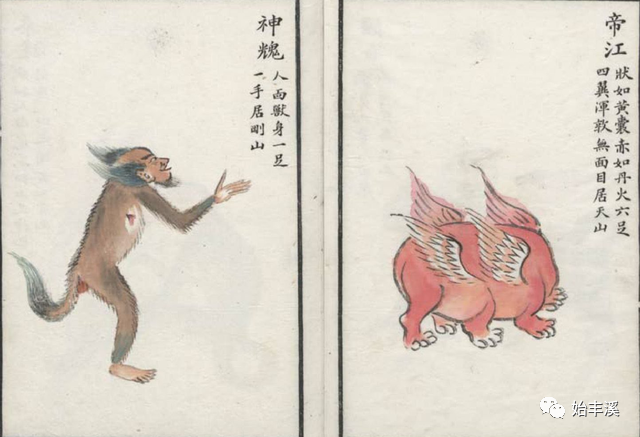 帝江
狀如黃囊赤如丹火六足
四翼渾軟無面目居天山
神
人面獸身一足
一手居剛山
始丰溪